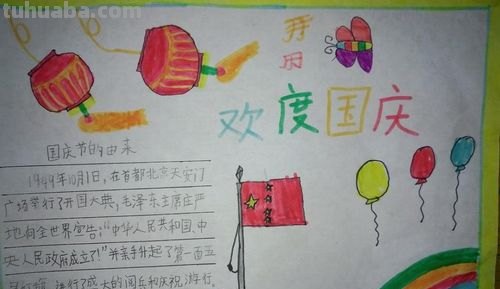 tuhuaba.com
欢度国庆
国庆节的由来
1949年10月1日,在首都北京天安门
广场举行了开国大典,毛泽东主席庄严
地向全世界宣告:"中华人民共和国,中
央人民政府成立了!"并亲手升起了第一面五
星红旗,进行了盛大的阅兵和庆祝游行。